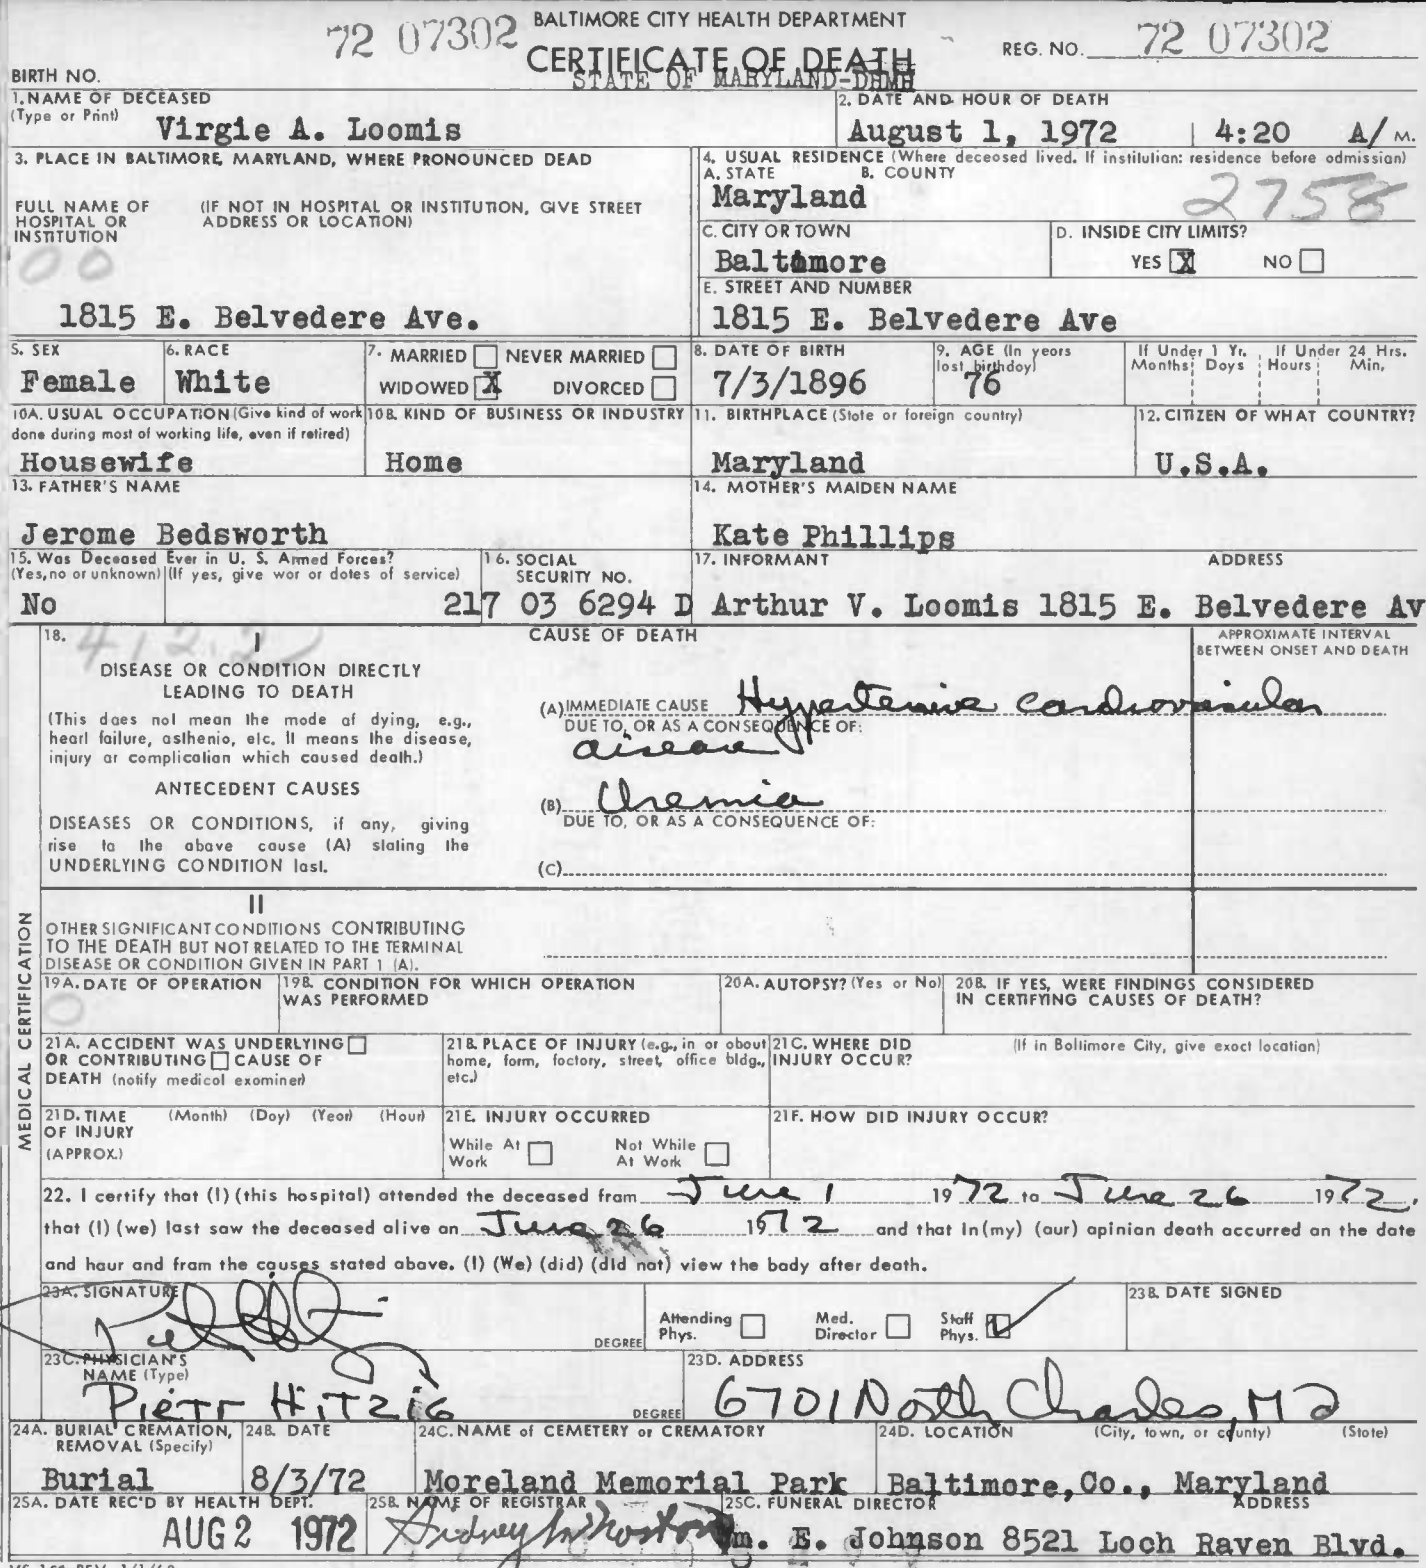 72 07302
BALTIMORE CITY HEALTH DEPARTMENT
CERTIFICATE OF DEATH
STATE OF MARYLAND-DHMH
REG. NO. 72 07302
BIRTH NO.
1. NAME OF DECEASED
(Type or Print) Virgie A. Loomis
2. DATE AND HOUR OF DEATH
August 1, 1972 4:20 A/ M.
3. PLACE IN BALTIMORE, MARYLAND, WHERE PRONOUNCED DEAD
FULL NAME OF HOSPITAL OR INSTITUTION
(IF NOT IN HOSPITAL OR INSTITUTION, GIVE STREET ADDRESS OR LOCATION)
00
1815 E. Belvedere Ave.
4. USUAL RESIDENCE (Where deceased lived. If institution: residence before admission)
A. STATE B. COUNTY
Maryland 2758
C. CITY OR TOWN
Baltimore
D. INSIDE CITY LIMITS?
YES X NO
E. STREET AND NUMBER
1815 E. Belvedere Ave
5. SEX
Female
6. RACE
White
7. MARRIED NEVER MARRIED
WIDOWED X DIVORCED
8. DATE OF BIRTH
7/3/1896
9. AGE (In years last birthday)
76
If Under 1 Yr. If Under 24 Hrs.
Months Days Hours Min.
10A. USUAL OCCUPATION (Give kind of work done during most of working life, even if retired)
Housewife
10B. KIND OF BUSINESS OR INDUSTRY
Home
11. BIRTHPLACE (State or foreign country)
Maryland
12. CITIZEN OF WHAT COUNTRY?
U.S.A.
13. FATHER'S NAME
Jerome Bedsworth
14. MOTHER'S MAIDEN NAME
Kate Phillips
15. Was Deceased Ever in U. S. Armed Forces?
(Yes, no or unknown) (If yes, give war or dates of service)
No
16. SOCIAL SECURITY NO.
217 03 6294 D
17. INFORMANT ADDRESS
Arthur V. Loomis 1815 E. Belvedere Av
18. 412.2
I
CAUSE OF DEATH
APPROXIMATE INTERVAL
BETWEEN ONSET AND DEATH
DISEASE OR CONDITION DIRECTLY
LEADING TO DEATH
(This does not mean the mode of dying, e.g.,
heart failure, asthenia, etc. It means the disease,
injury or complication which caused death.)
(A) IMMEDIATE CAUSE Hypertensive cardiovascular
DUE TO, OR AS A CONSEQUENCE OF:
disease
ANTECEDENT CAUSES
DISEASES OR CONDITIONS, if any, giving
rise to the above cause (A) stating the
UNDERLYING CONDITION last.
(B) Uremia
DUE TO, OR AS A CONSEQUENCE OF:
(C)
II
OTHER SIGNIFICANT CONDITIONS CONTRIBUTING
TO THE DEATH BUT NOT RELATED TO THE TERMINAL
DISEASE OR CONDITION GIVEN IN PART 1 (A).
MEDICAL CERTIFICATION
19A. DATE OF OPERATION
0
19B. CONDITION FOR WHICH OPERATION
WAS PERFORMED
20A. AUTOPSY? (Yes or No)
20B. IF YES, WERE FINDINGS CONSIDERED
IN CERTIFYING CAUSES OF DEATH?
21A. ACCIDENT WAS UNDERLYING
OR CONTRIBUTING CAUSE OF
DEATH (notify medical examiner)
21B. PLACE OF INJURY (e.g., in or about
home, farm, factory, street, office bldg.,
etc.)
21C. WHERE DID
INJURY OCCUR?
(If in Baltimore City, give exact location)
21D. TIME (Month) (Day) (Year) (Hour)
OF INJURY
(APPROX.)
21E. INJURY OCCURRED
While At Work Not While At Work
21F. HOW DID INJURY OCCUR?
22. I certify that (I) (this hospital) attended the deceased from June 1 1972 to June 26 1972,
that (I) (we) last saw the deceased alive on June 26 1972 and that in (my) (our) opinion death occurred on the date
and hour and from the causes stated above. (I) (We) (did) (did not) view the body after death.
23A. SIGNATURE
DEGREE
Attending Phys. Med. Director Staff Phys.
23B. DATE SIGNED
23C. PHYSICIAN'S
NAME (Type)
Pietr Hitzig
DEGREE
23D. ADDRESS
6701 North Charles, Md
24A. BURIAL CREMATION,
REMOVAL (Specify)
Burial
24B. DATE
8/3/72
24C. NAME of CEMETERY or CREMATORY
Moreland Memorial Park
24D. LOCATION (City, town, or county) (State)
Baltimore, Co., Maryland
25A. DATE REC'D BY HEALTH DEPT.
AUG 2 1972
25B. NAME OF REGISTRAR
25C. FUNERAL DIRECTOR ADDRESS
Wm. E. Johnson 8521 Loch Raven Blvd.